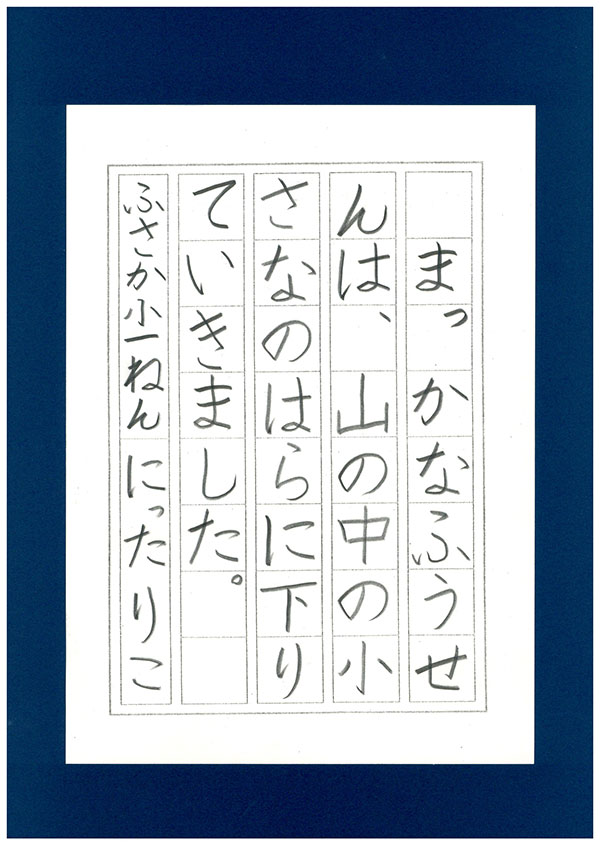 まっかなふうせ
んは、山の中の小
さなのはらに下り
ていきました。
ふさか小一ねん にったりこ